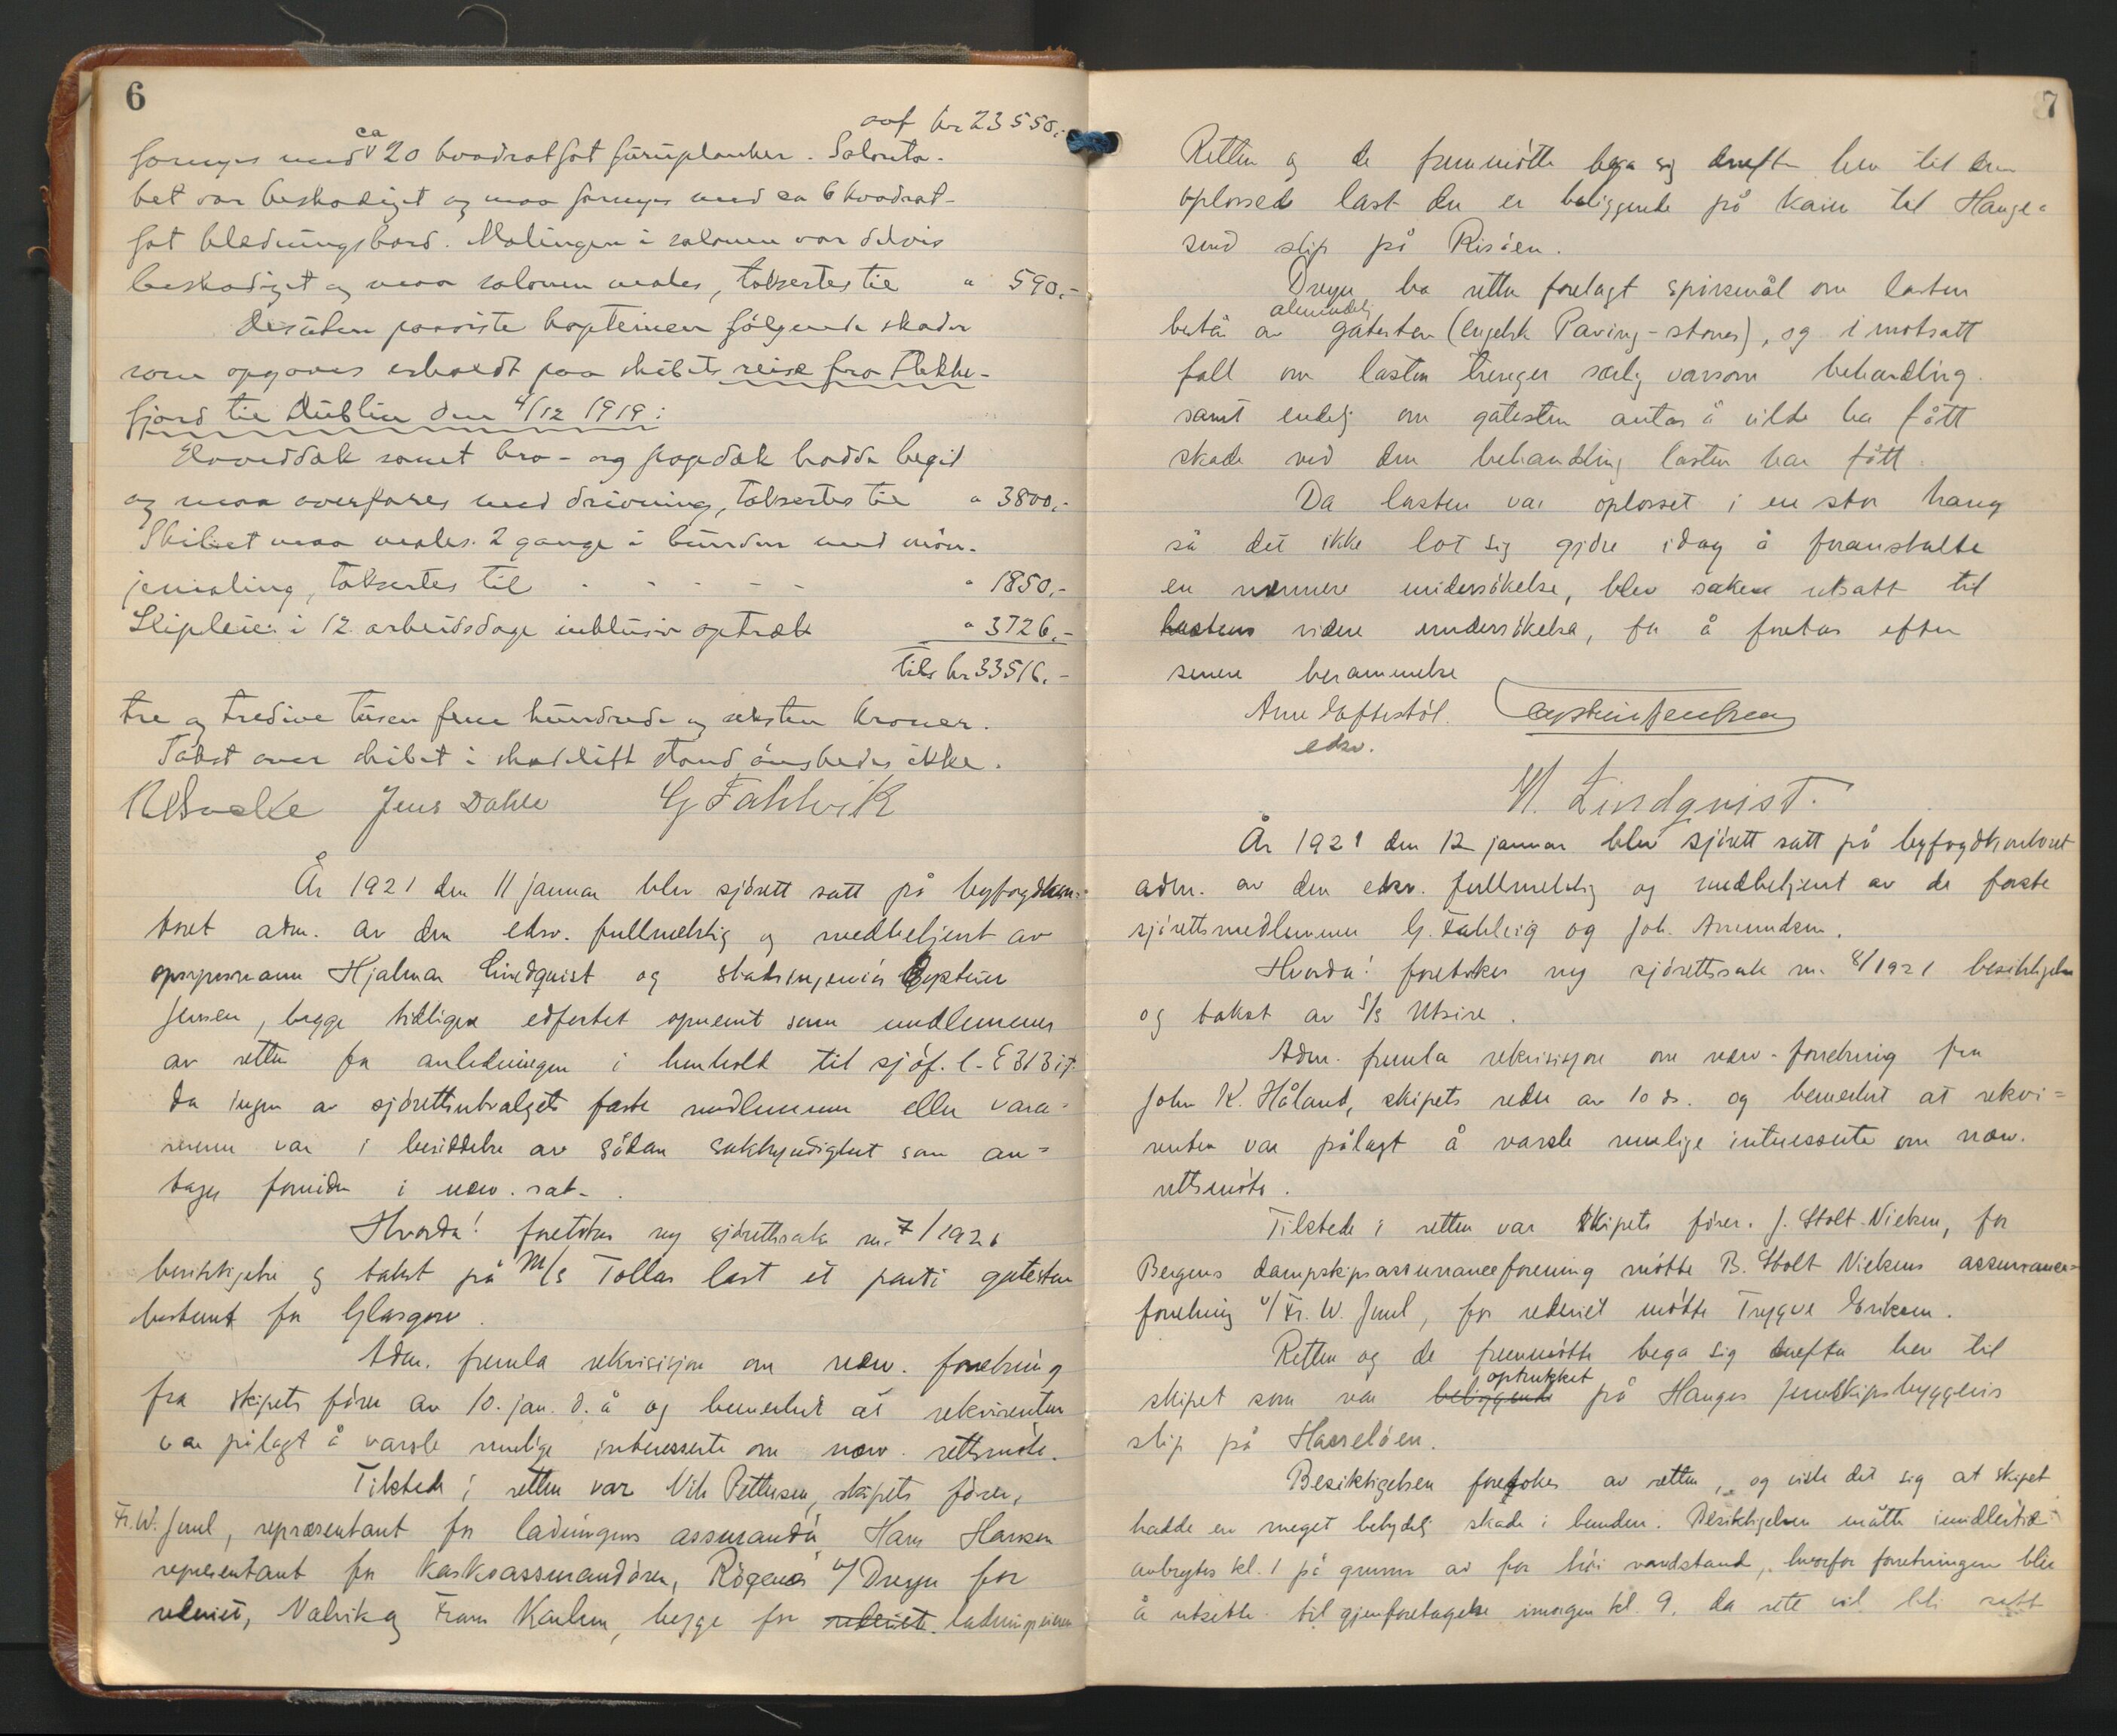 6
ovf kr 23550,-
fornyes med ca 20 kvadratfot furuplanker. Salonta-
ket var beskadiget og maa fornyes med ca 6 kvadrat-
fot klædningsbord. Malingen i salonen var delvis
beskadiget og maa salonen males, takseres til " 590,-
Desuten paaviste kapteinen følgende skader
som opgaves erholdt paa skibets reise fra Flekke-
fjord til Dublin den 4/12 1919:
Hoveddæk samt bro- og poopdæk hadde begit
og maa overfares med drivning, takseres til " 3800,-
Skibet maa males 2 gange i bunden med møn-
jemaling, takseres til - - - - - " 1850,-
Slipleie i 12 arbeidsdage inklusiv optræk " 3726,-
Tils kr 33516,-
tre og tredive tusen fem hundrede og seksten kroner.
Takst over skibet i skadelidt stand ønskedes ikke.
Jens Dahle G Fahlvik
År 1921 den 11 januar blev sjørett satt på byfogdkon-
toret adm. av den edsv. fullmektig og medbetjent av
opsynsmann Hjalmar Lindquist og stadsingeniør Eystein
Jensen, begge tidligere edfestet opnevnt som medlemmer
av retten for anledningen i henhold til sjøf. l. § 313 i.f.
da ingen av sjørettsutvalgets faste medlemmer eller vara-
menn var i besiddelse av sådan sakkyndighet som an-
tages fornøden i nevn. sak.
Hvorda! foretokes ny sjørettssak nr. 7/1921
besiktigelse og takst på M/S Tollas last et parti gatesten
bestemt for Glasgow.
Adm. fremla rekvisisjon om nevn. forretning
fra skipets fører av 10. jan. d. å og bemerket at rekvirenten
var pålagt å varsle mulige interesserte om nevn. rettsmøte.
Tilstede i retten var Nils Pettersen, skipets fører,
Fr. W. Juul, repræsentant for ladningens assurandør, Hans Hansen
representant for kaskoassurandøren, Rögenes v/ Dreyer for
rederiet, Valvik og Fram Karlsen, begge for rederiet ladningseieren
7
Retten og de fremmøtte bega sig derefter hen til den
oplossede last der er beliggende på kaien til Hauge-
sund slip på Risøen.
Dreyer ba retten forelagt spørsmål om lasten
består av almindelig gatesten (engelsk Paving-stones), og i motsatt
fall om lasten trenger særlig varsom behandling.
samt endelig om gatesten antas å vilde ha fått
skade ved den behandling lasten har fått.
Da lasten var oplosset i en stor haug
så det ikke lot sig gjøre idag å foranstalte
en nærmere undersøkelse, blev saken utsatt til
lastens videre undersøkelse, for å foretas efter
senere berammelse
Arne Løftestøl. Eystein Jensen
edsv.
Hj. Lindquist.
År 1921 den 12 januar blev sjørett satt på byfogdkontoret
adm. av den edsv. fullmektig og medbetjent av de faste
sjørettsmedlemmer G. Fahlvig og Joh. Amundsen.
Hvorda! foretokes ny sjørettssak nr. 8/1921 besiktigelse
og takst av S/S Utsire.
Adm. fremla rekvisisjon om nevn. forretning fra
John K. Håland, skipets reder av 10 ds. og bemerket at rekvi-
renten var pålagt å varsle mulige interesserte om nevn.
rettsmøte.
Tilstede i retten var skipets fører. J. Stolt-Nielsen, for
Bergens dampskipsassuranceforening møtte B. Stolt Nielsens assurance-
forretning v/ Fr. W. Juul, for rederiet møtte Trygve Eriksen.
Retten og de fremmøtte bega sig derefter hen til
skipet som var beliggende optrukket på Hauges jernskipsbyggeris
slip på Hasseløen.
Besiktigelsen foretokes av retten, og viste det sig at skipet
hadde en meget betydelig skade i bunden. Besiktigelsen måtte imidlertid
avbrytes kl. 1 på grunn av for høi vandstand, hvorfor forretningen blir
å utsette til gjenforetagelse imorgen kl. 9, da rett vil bli satt